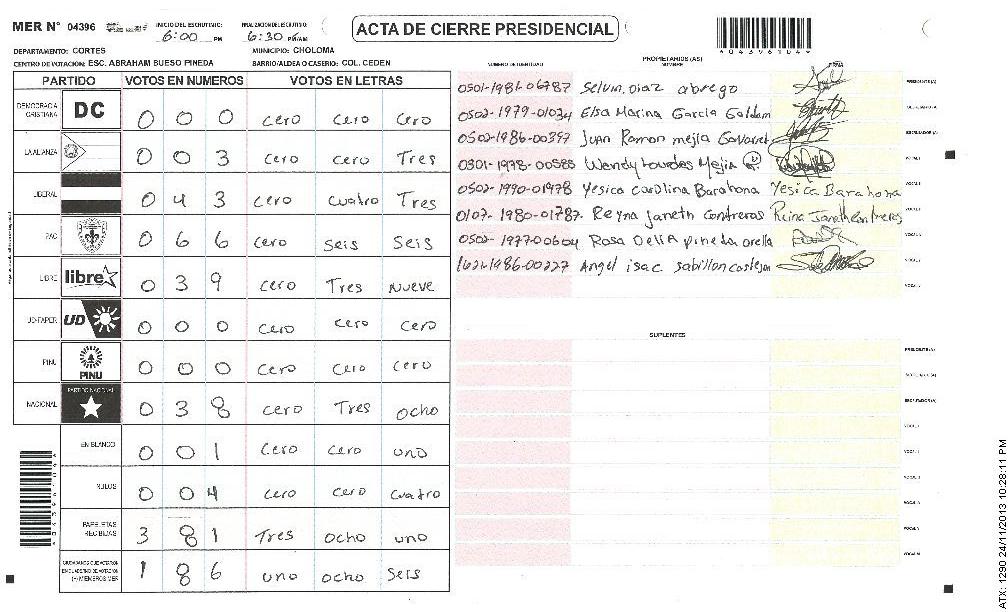 MER N° 04396
INICIO DEL ESCRUTINIO:
6:00 PM
FINALIZACION DEL ESCRUTINIO:
6:30 PM/AM
ACTA DE CIERRE PRESIDENCIAL
*04396104*
DEPARTAMENTO: CORTES
MUNICIPIO: CHOLOMA
CENTRO DE VOTACIÓN: ESC. ABRAHAM BUESO PINEDA
BARRIO/ALDEA O CASERIO: COL. CEDEN
PARTIDO VOTOS EN NUMEROS VOTOS EN LETRAS
DEMOCRACIA CRISTIANA DC 0 0 0 cero cero cero
LA ALIANZA 0 0 3 cero cero Tres
LIBERAL 0 4 3 cero cuatro Tres
PAC 0 6 6 cero seis seis
LIBRE libre 0 3 9 cero Tres nueve
UD-FAPER UD 0 0 0 cero cero cero
PINU PINU 0 0 0 cero cero cero
NACIONAL PARTIDO NACIONAL 0 3 8 cero Tres ocho
EN BLANCO 0 0 1 cero cero uno
NULOS 0 0 4 cero cero cuatro
PAPELETAS RECIBIDAS 3 8 1 Tres ocho uno
CIUDADANOS QUE VOTARON EN CUADERNO DE VOTACION (+) MIEMBROS MER 1 8 6 uno ocho seis
PROPIETARIOS (AS)
NUMERO DE IDENTIDAD NOMBRE FIRMA
0501-1981-06787 Selvin Diaz abrego PRESIDENTE (A)
0502-1979-01034 Elsa Marina Garcia Galdam SECRETARIO (A)
0502-1986-00397 Juan Ramon mejia ESCRUTADOR (A)
0301-1978-00585 Wendy Lourdes Mejia VOCAL I
0502-1990-01978 Yesica carolina Barahona Yesica Barahona VOCAL II
0107-1980-01787 Reyna Janeth Contreras Reina Janeth contreras
0502-1977-00604 Rosa Delia pineda orella
1621-1986-00227 Angel isac sabillon castejon
SUPLENTES
PRESIDENTE (A)
SECRETARIO (A)
ESCRUTADOR (A)
VOCAL I
ATX: 1290 24/11/2013 10:28:11 PM